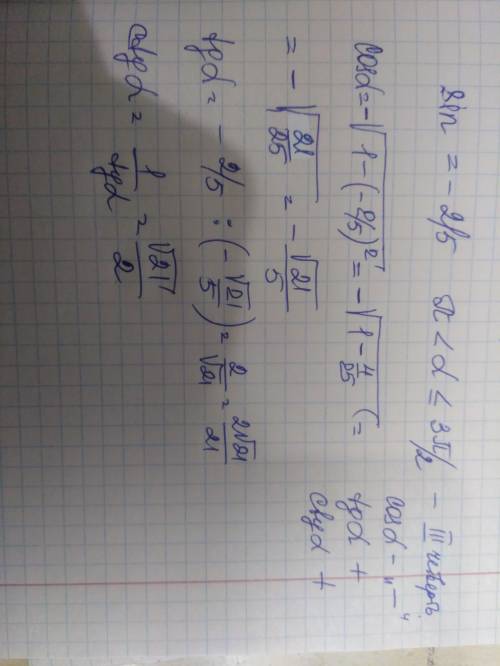 sin = -2/5   π < α ≤ 3π/2 - III четверть
cosα - "-"
tgα +
ctgα +
cosα = -√(1-(-2/5)²) = -√(1-4/25) (=
= -√(21/25) = -√21/5
tgα = -2/5 : (-√21/5) = 2/√21 = 2√21/21
ctgα = 1/tgα = √21/2